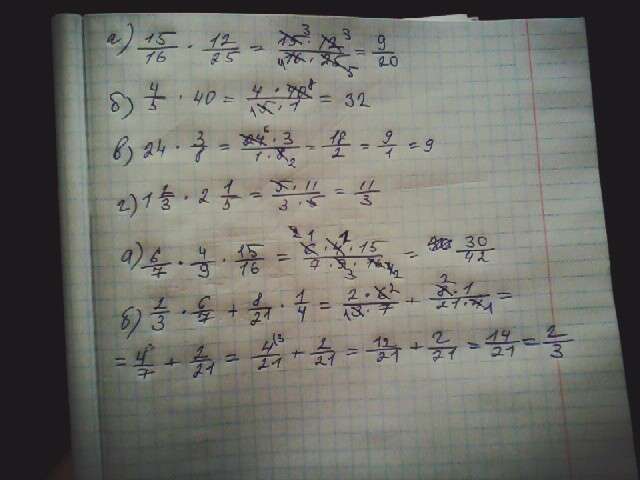 а) 15/16 · 12/25 = 15³ · 12³ / ₄16 · 25₅ = 9/20
б) 4/5 · 40 = 4 · 40⁸ / ₁5 · 1 = 32
в) 24 · 3/8 = 24⁶ · 3 / 1 · 8₂ = 18/2 = 9/1 = 9
г) 1 2/3 · 2 1/5 = 5 · 11 / 3 · 5 = 11/3
а) 6/7 · 4/9 · 15/16 = 15 / 7 = 30/42
б) 2/3 · 6/7 + 8/21 · 1/4 = 2 · 6² / ₁3 · 7 + ²8 · 1 / 21 · 4₁ =
= 4³/7 + 2/21 = 4⁽³/21 + 2/21 = 12/21 + 2/21 = 14/21 = 2/3